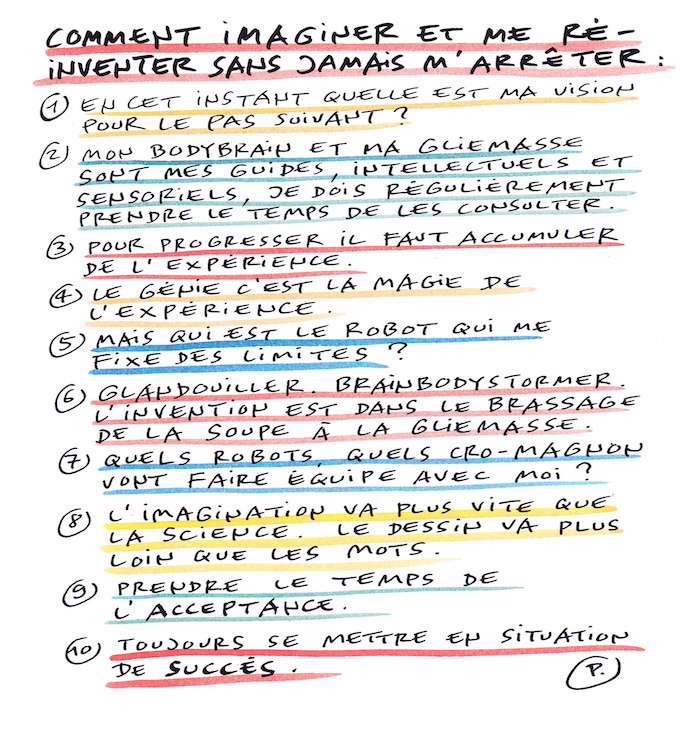 COMMENT IMAGINER ET ME RÉ-
INVENTER SANS JAMAIS M'ARRÊTER :
1 EN CET INSTANT QUELLE EST MA VISION
POUR LE PAS SUIVANT ?
2 MON BODYBRAIN ET MA GLIEMASSE
SONT MES GUIDES, INTELLECTUELS ET
SENSORIELS, JE DOIS RÉGULIÈREMENT
PRENDRE LE TEMPS DE LES CONSULTER.
3 POUR PROGRESSER IL FAUT ACCUMULER
DE L'EXPÉRIENCE.
4 LE GÉNIE C'EST LA MAGIE DE
L'EXPÉRIENCE.
5 MAIS QUI EST LE ROBOT QUI ME
FIXE DES LIMITES ?
6 GLANDOUILLER. BRAINBODYSTORMER.
L'INVENTION EST DANS LE BRASSAGE
DE LA SOUPE À LA GLIEMASSE.
7 QUELS ROBOTS, QUELS CRO-MAGNON
VONT FAIRE ÉQUIPE AVEC MOI ?
8 L'IMAGINATION VA PLUS VITE QUE
LA SCIENCE. LE DESSIN VA PLUS
LOIN QUE LES MOTS.
9 PRENDRE LE TEMPS DE
L'ACCEPTANCE.
10 TOUJOURS SE METTRE EN SITUATION
DE SUCCÉS.
P.